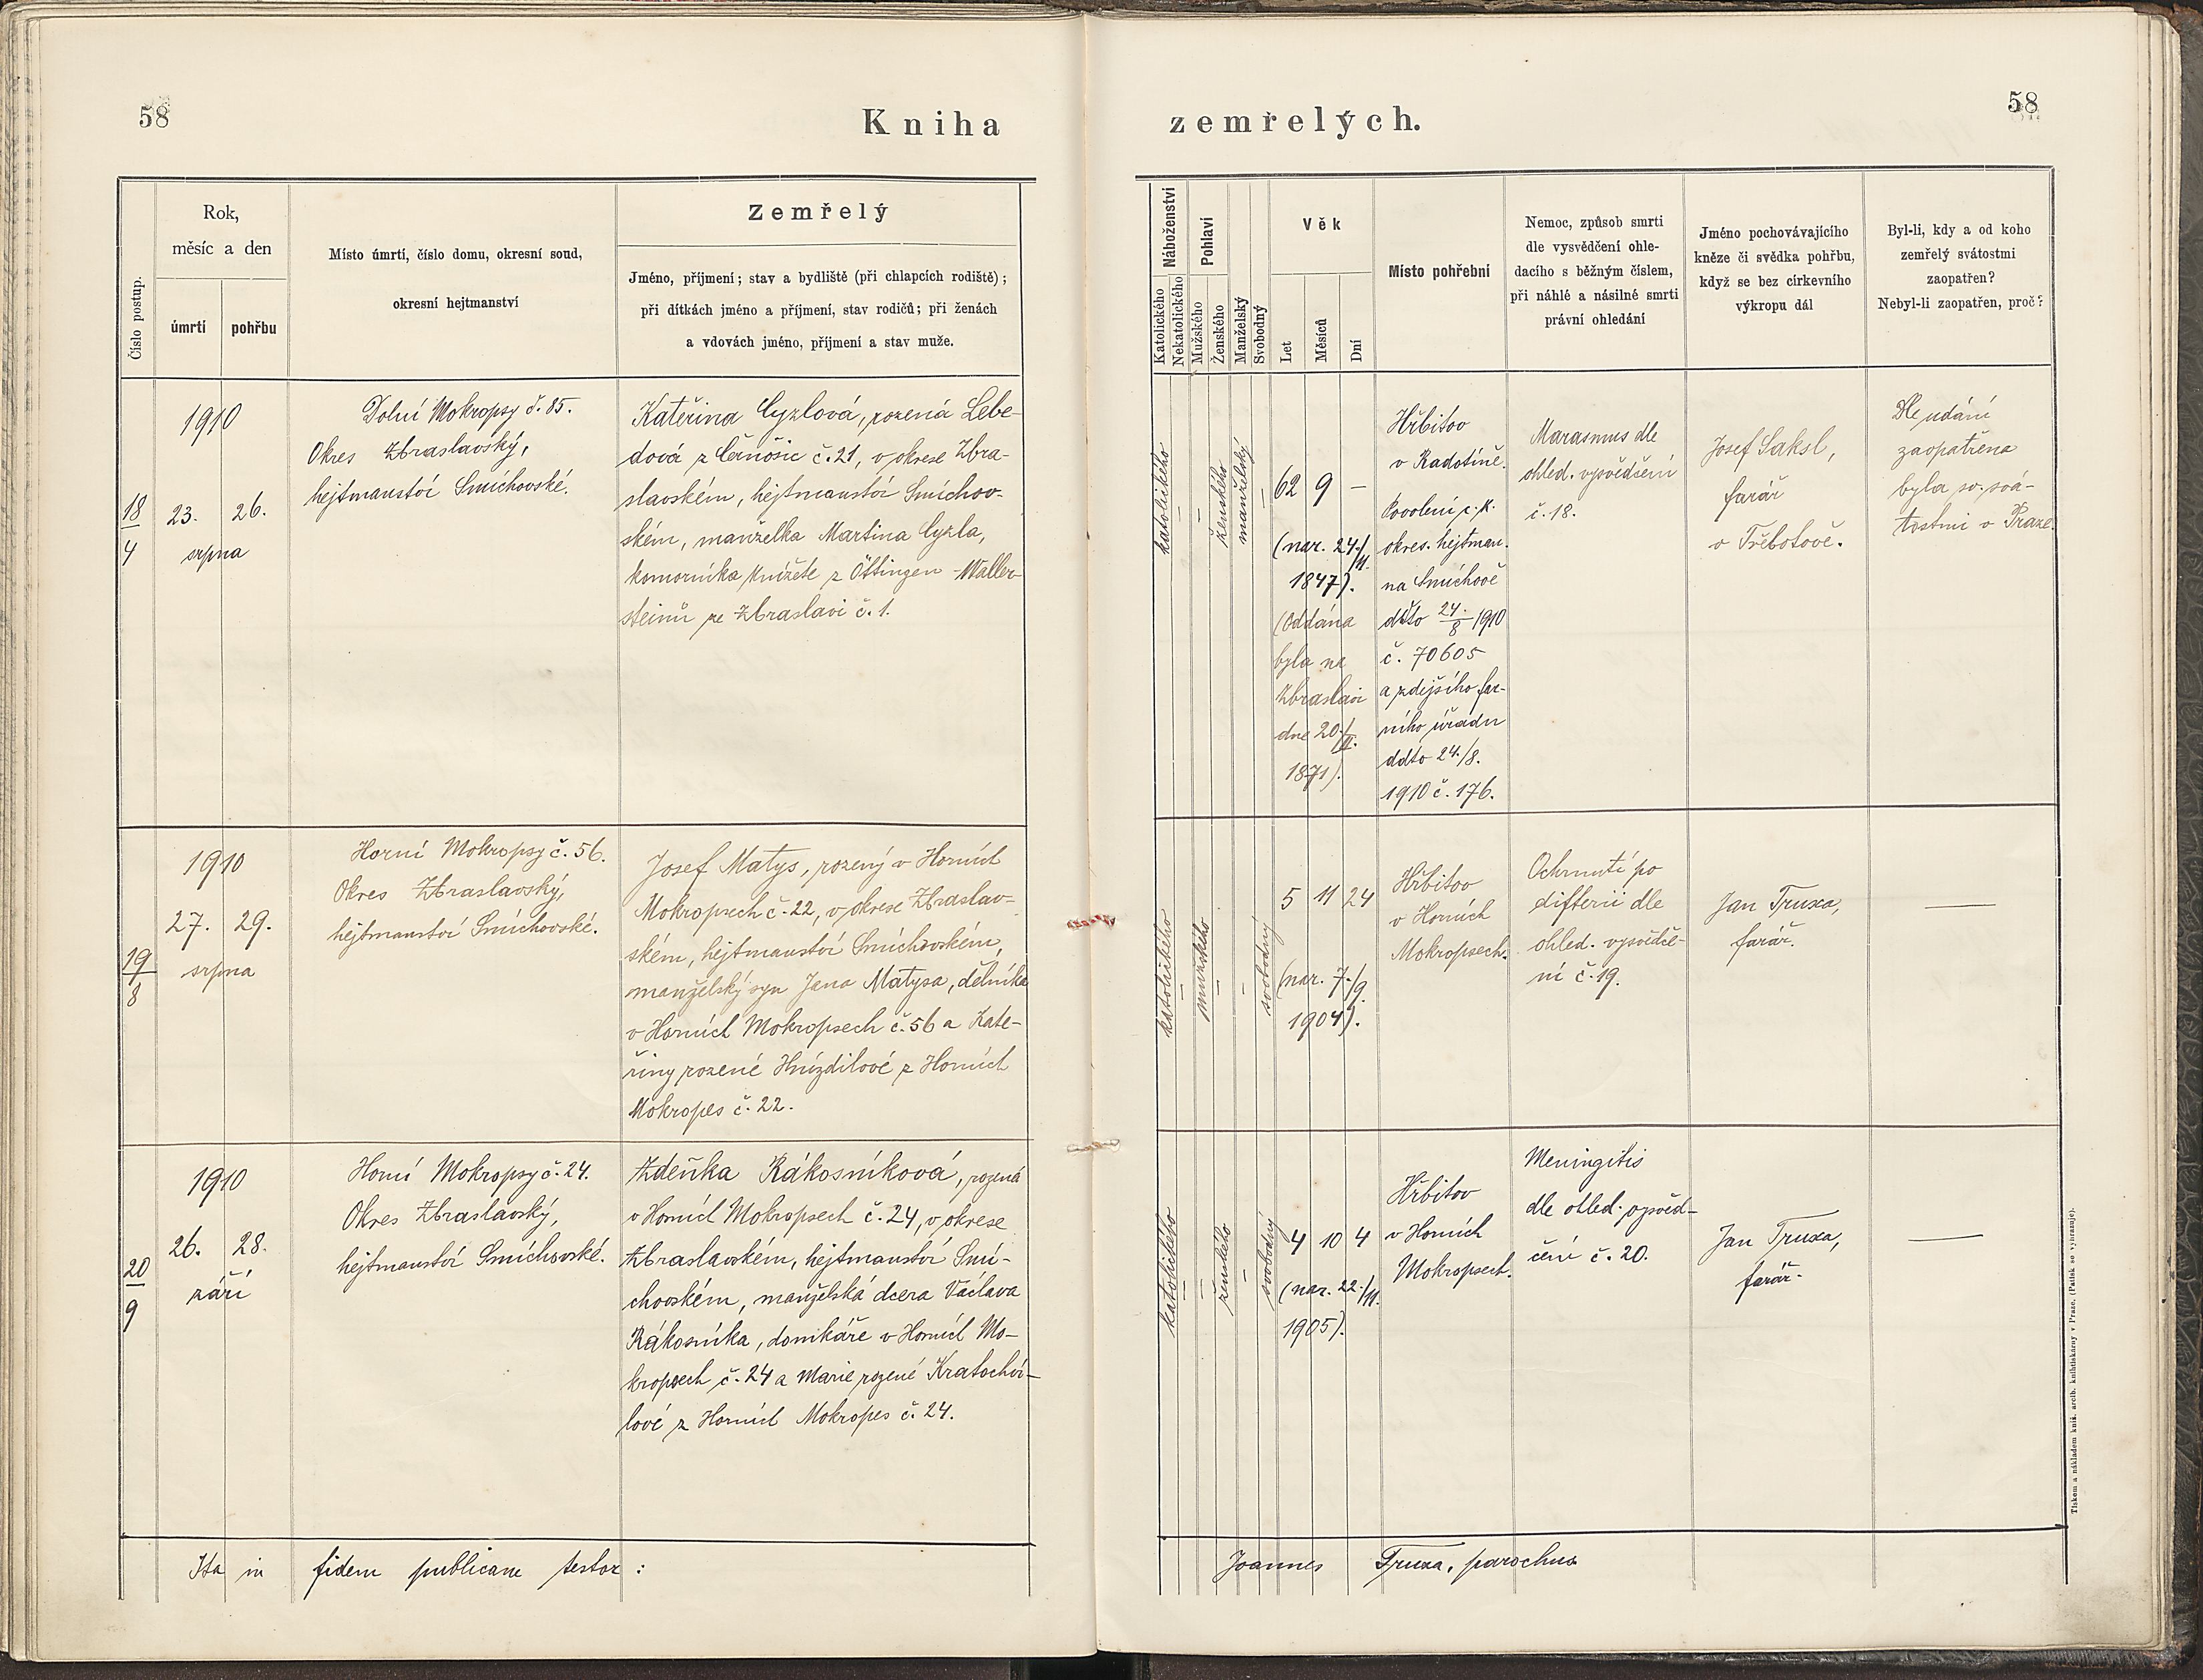 58
Kniha
zemřelých.
58
Číslo postup.
Rok,
měsíc a den
úmrtí
pohřbu
Místo úmrtí, číslo domu, okresní soud,
okresní hejtmanství
Zemřelý
Jméno, příjmení; stav a bydliště (při chlapcích rodiště);
při dítkách jméno a příjmení, stav rodičů; při ženách
a vdovách jméno, příjmení a stav muže.
Náboženství
Katolického
Nekatolického
Pohlaví
Mužského
Ženského
Manželský
Svobodný
Věk
Let
Měsíců
Dní
Místo pohřební
Nemoc, způsob smrti
dle vysvědčení ohle-
dacího s běžným číslem,
při náhlé a násilné smrti
právní ohledání
Jméno pochovávajícího
kněze či svědka pohřbu,
když se bez církevního
výkropu dál
Byl-li, kdy a od koho
zemřelý svátostmi
zaopatřen?
Nebyl-li zaopatřen, proč?
18
4
1910
23. 26.
srpna
Dolní Mokropsy č. 85.
Okres Zbraslavský,
hejtmanství Smíchovské.
Kateřina Cyzlová, rozená Lebe-
dová z Černošic č. 21, v okrese Zbra-
slavském, hejtmanství Smíchov-
ském, manželka Martina Cyzla,
komorníka knížete z Öttingen-Waller-
steinů ze Zbraslavi č. 1.
katolického
—
—
ženského
manželský
—
62 9 —
(nar. 24./11.
1847).
(Oddána
byla na
Zbraslavi
dne 20./II.
1871).
Hřbitov
v Radotíně.
Povolení c. k.
okres. hejtman.
na Smíchově
ddto 24./8 1910
č. 70605
a zdejšího far-
ního úřadu
ddto 24./8.
1910 č. 176.
Marasmus dle
ohled. vysvědčení
č. 18.
Josef Saksl,
farář
v Třebotově.
Dle udání
zaopatřena
byla sv. svá-
tostmi v Praze.
19
8
1910
27. 29.
srpna
Horní Mokropsy č. 56.
Okres Zbraslavský,
hejtmanství Smíchovské.
Josef Matys, rozený v Horních
Mokropsech č. 22, v okrese Zbraslav-
ském, hejtmanství Smíchovském,
manželský syn Jana Matysa, dělníka
v Horních Mokropsech č. 56 a Kate-
řiny rozené Hnízdilové z Horních
Mokropes č. 22.
katolického
—
mužského
—
—
svobodný
5 11 24
(nar. 7./9.
1904).
Hřbitov
v Horních
Mokropsech.
Ochrnutí po
difterii dle
ohled. vysvědče-
ní č. 19.
Jan Truxa,
farář.
—
20
9
1910
26. 28.
září
Horní Mokropsy č. 24.
Okres Zbraslavský,
hejtmanství Smíchovské.
Zdeňka Rákosníková, rozená
v Horních Mokropsech č. 24, v okrese
Zbraslavském, hejtmanství Smí-
chovském, manželská dcera Václava
Rákosníka, domkáře v Horních Mo-
kropsech č. 24 a Marie rozené Kratochví-
lové z Horních Mokropes č. 24.
katolického
—
—
ženského
—
svobodný
4 10 4
(nar. 22./11.
1905).
Hřbitov
v Horních
Mokropsech.
Meningitis
dle ohled. vysvěd-
čení č. 20.
Jan Truxa,
farář.
—
Ita in fidem publicam testor:
Joannes Truxa, parochus
Tiskem a nákladem kníž. arcib. knihtiskárny v Praze. (Patisk se vyhrazuje).